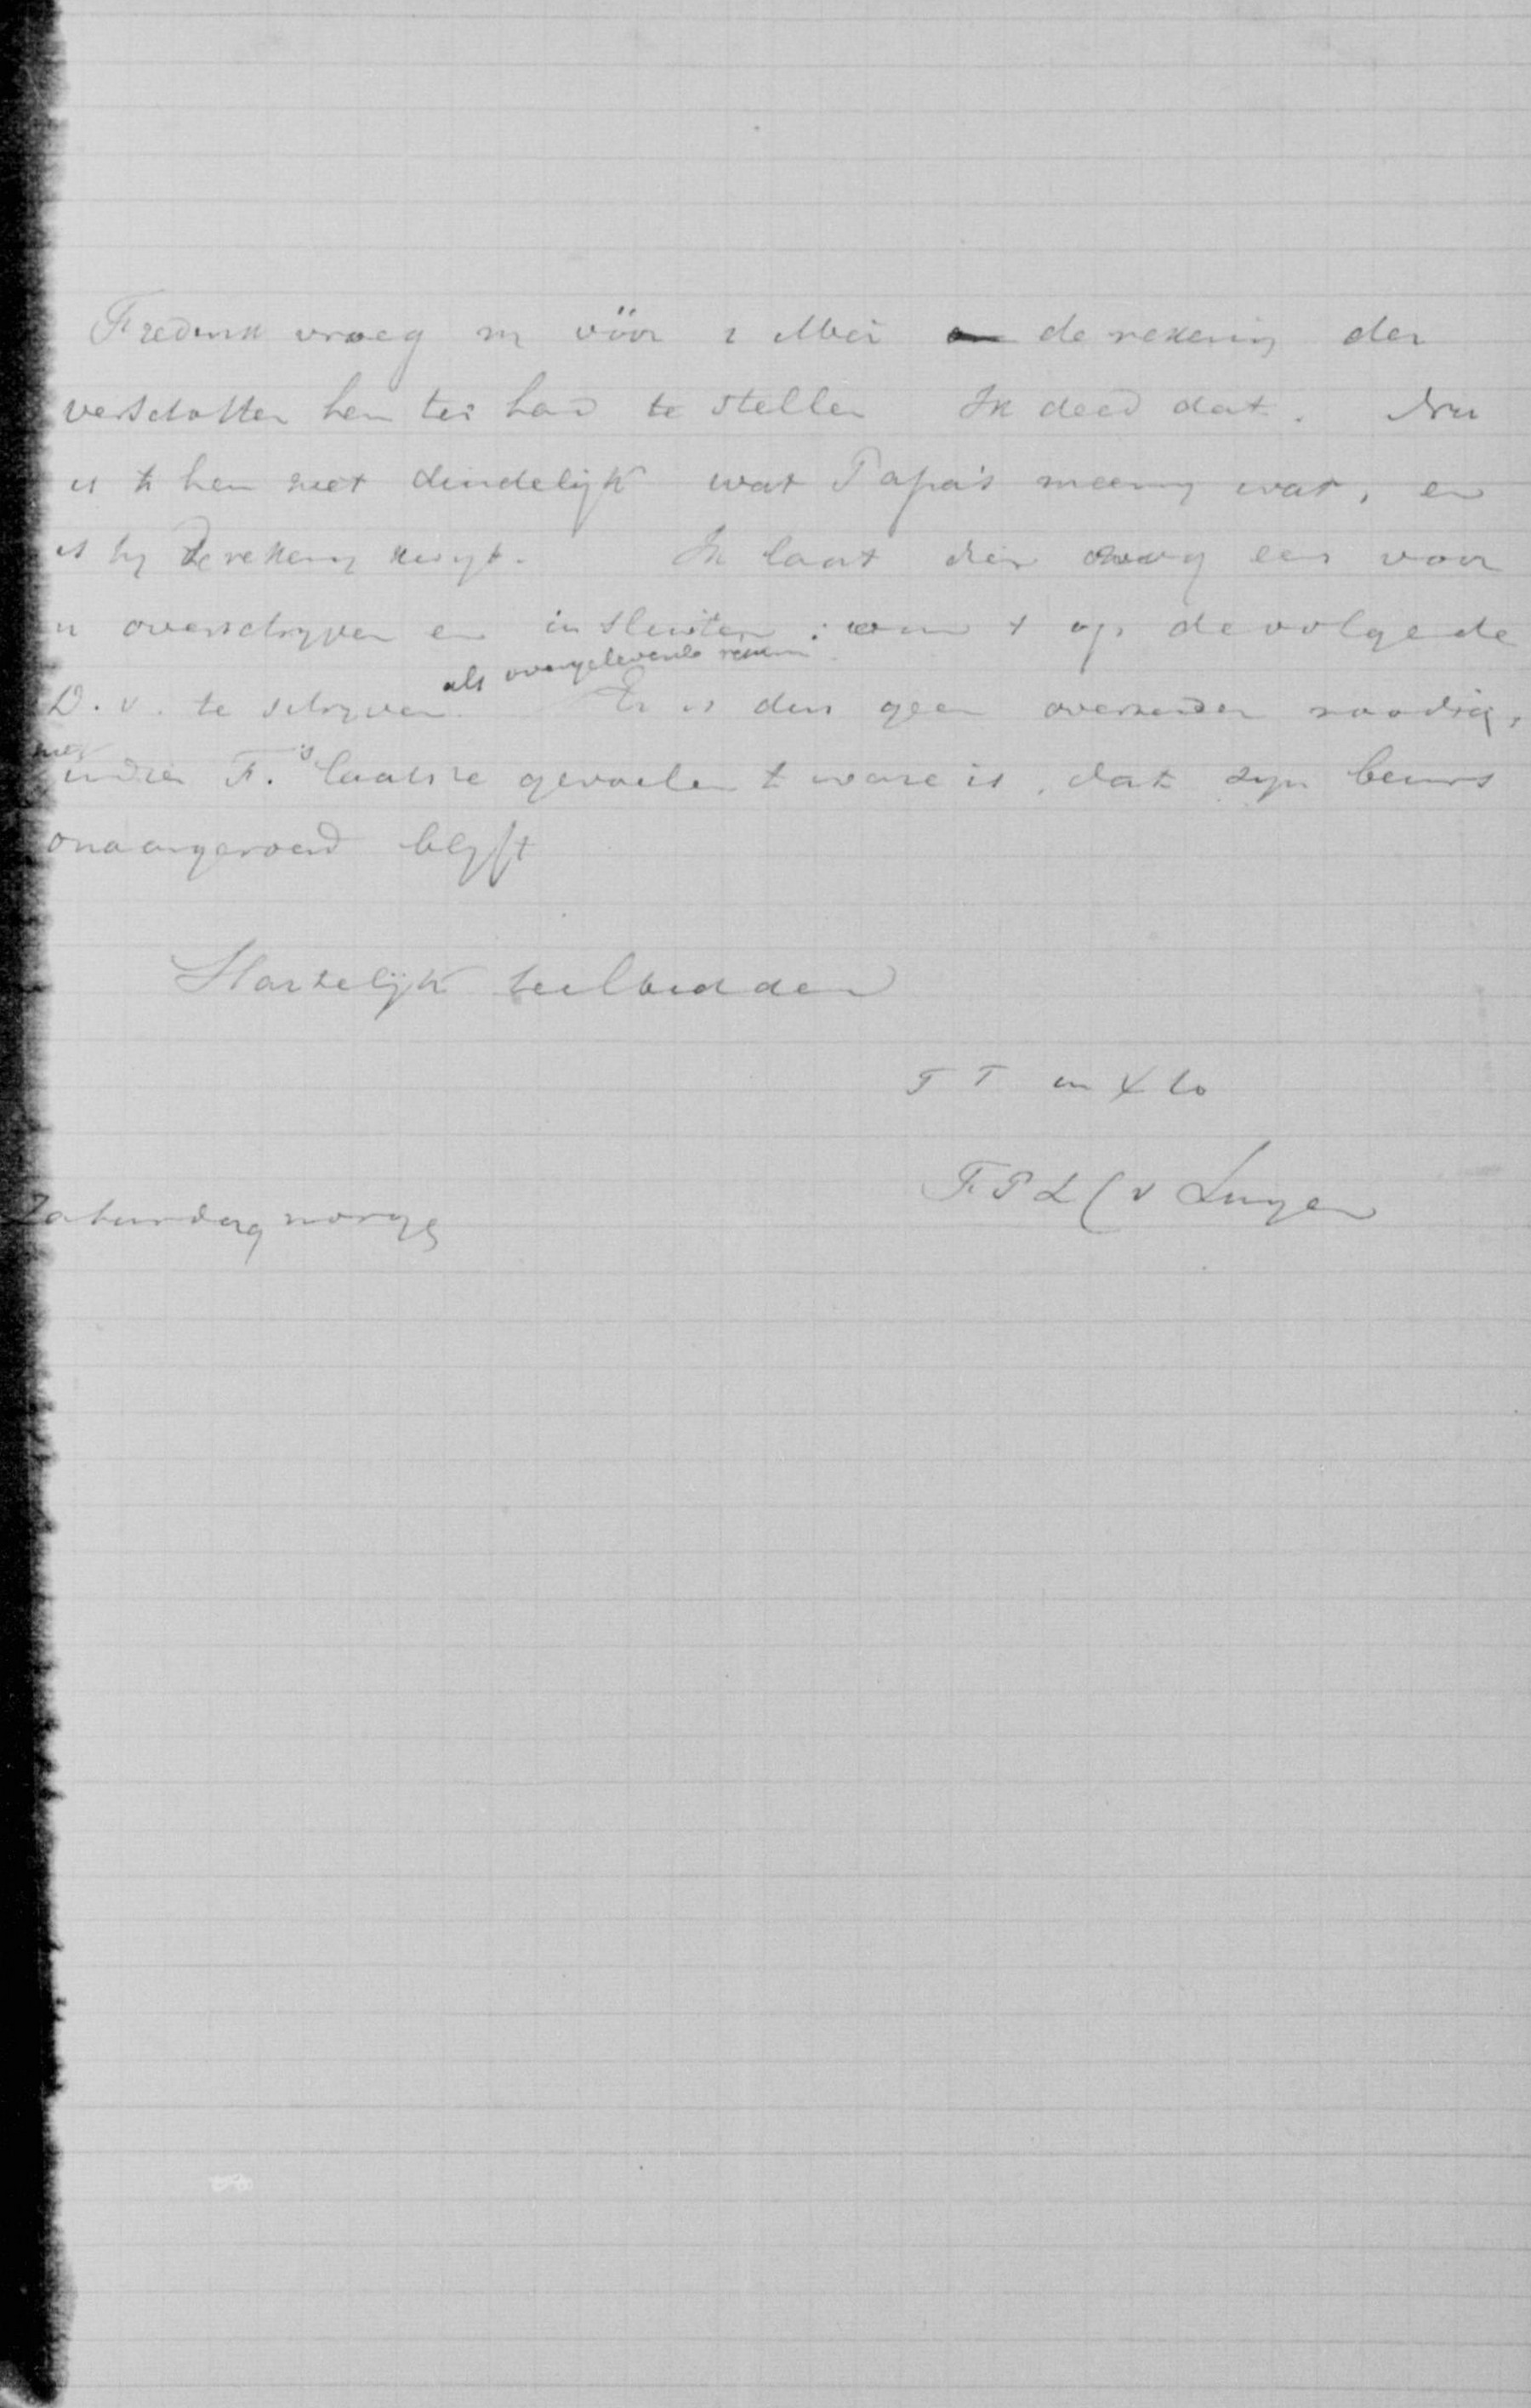 Frederik vroeg m vóór 1 Mei de rekening der
verschotten hem ter hand te stellen Ik deed dat. Nu
is 't hem niet duidelijk wat Papa's meening was, en
is hy de rekening kwyt. Ik laat dies nog een voor
u overschryven en insluiten; om t op de volgende
als overgeleverde
D.V. te schryven. Er is dus geen overzenden noodig,
indien F.'s laatste gevoelen t ware is, dat zyn beurs
onaangeroerd blyft
Hartelijk heilbiddend
T T in X to
F P L C v Lingen
Zaturdag morgen